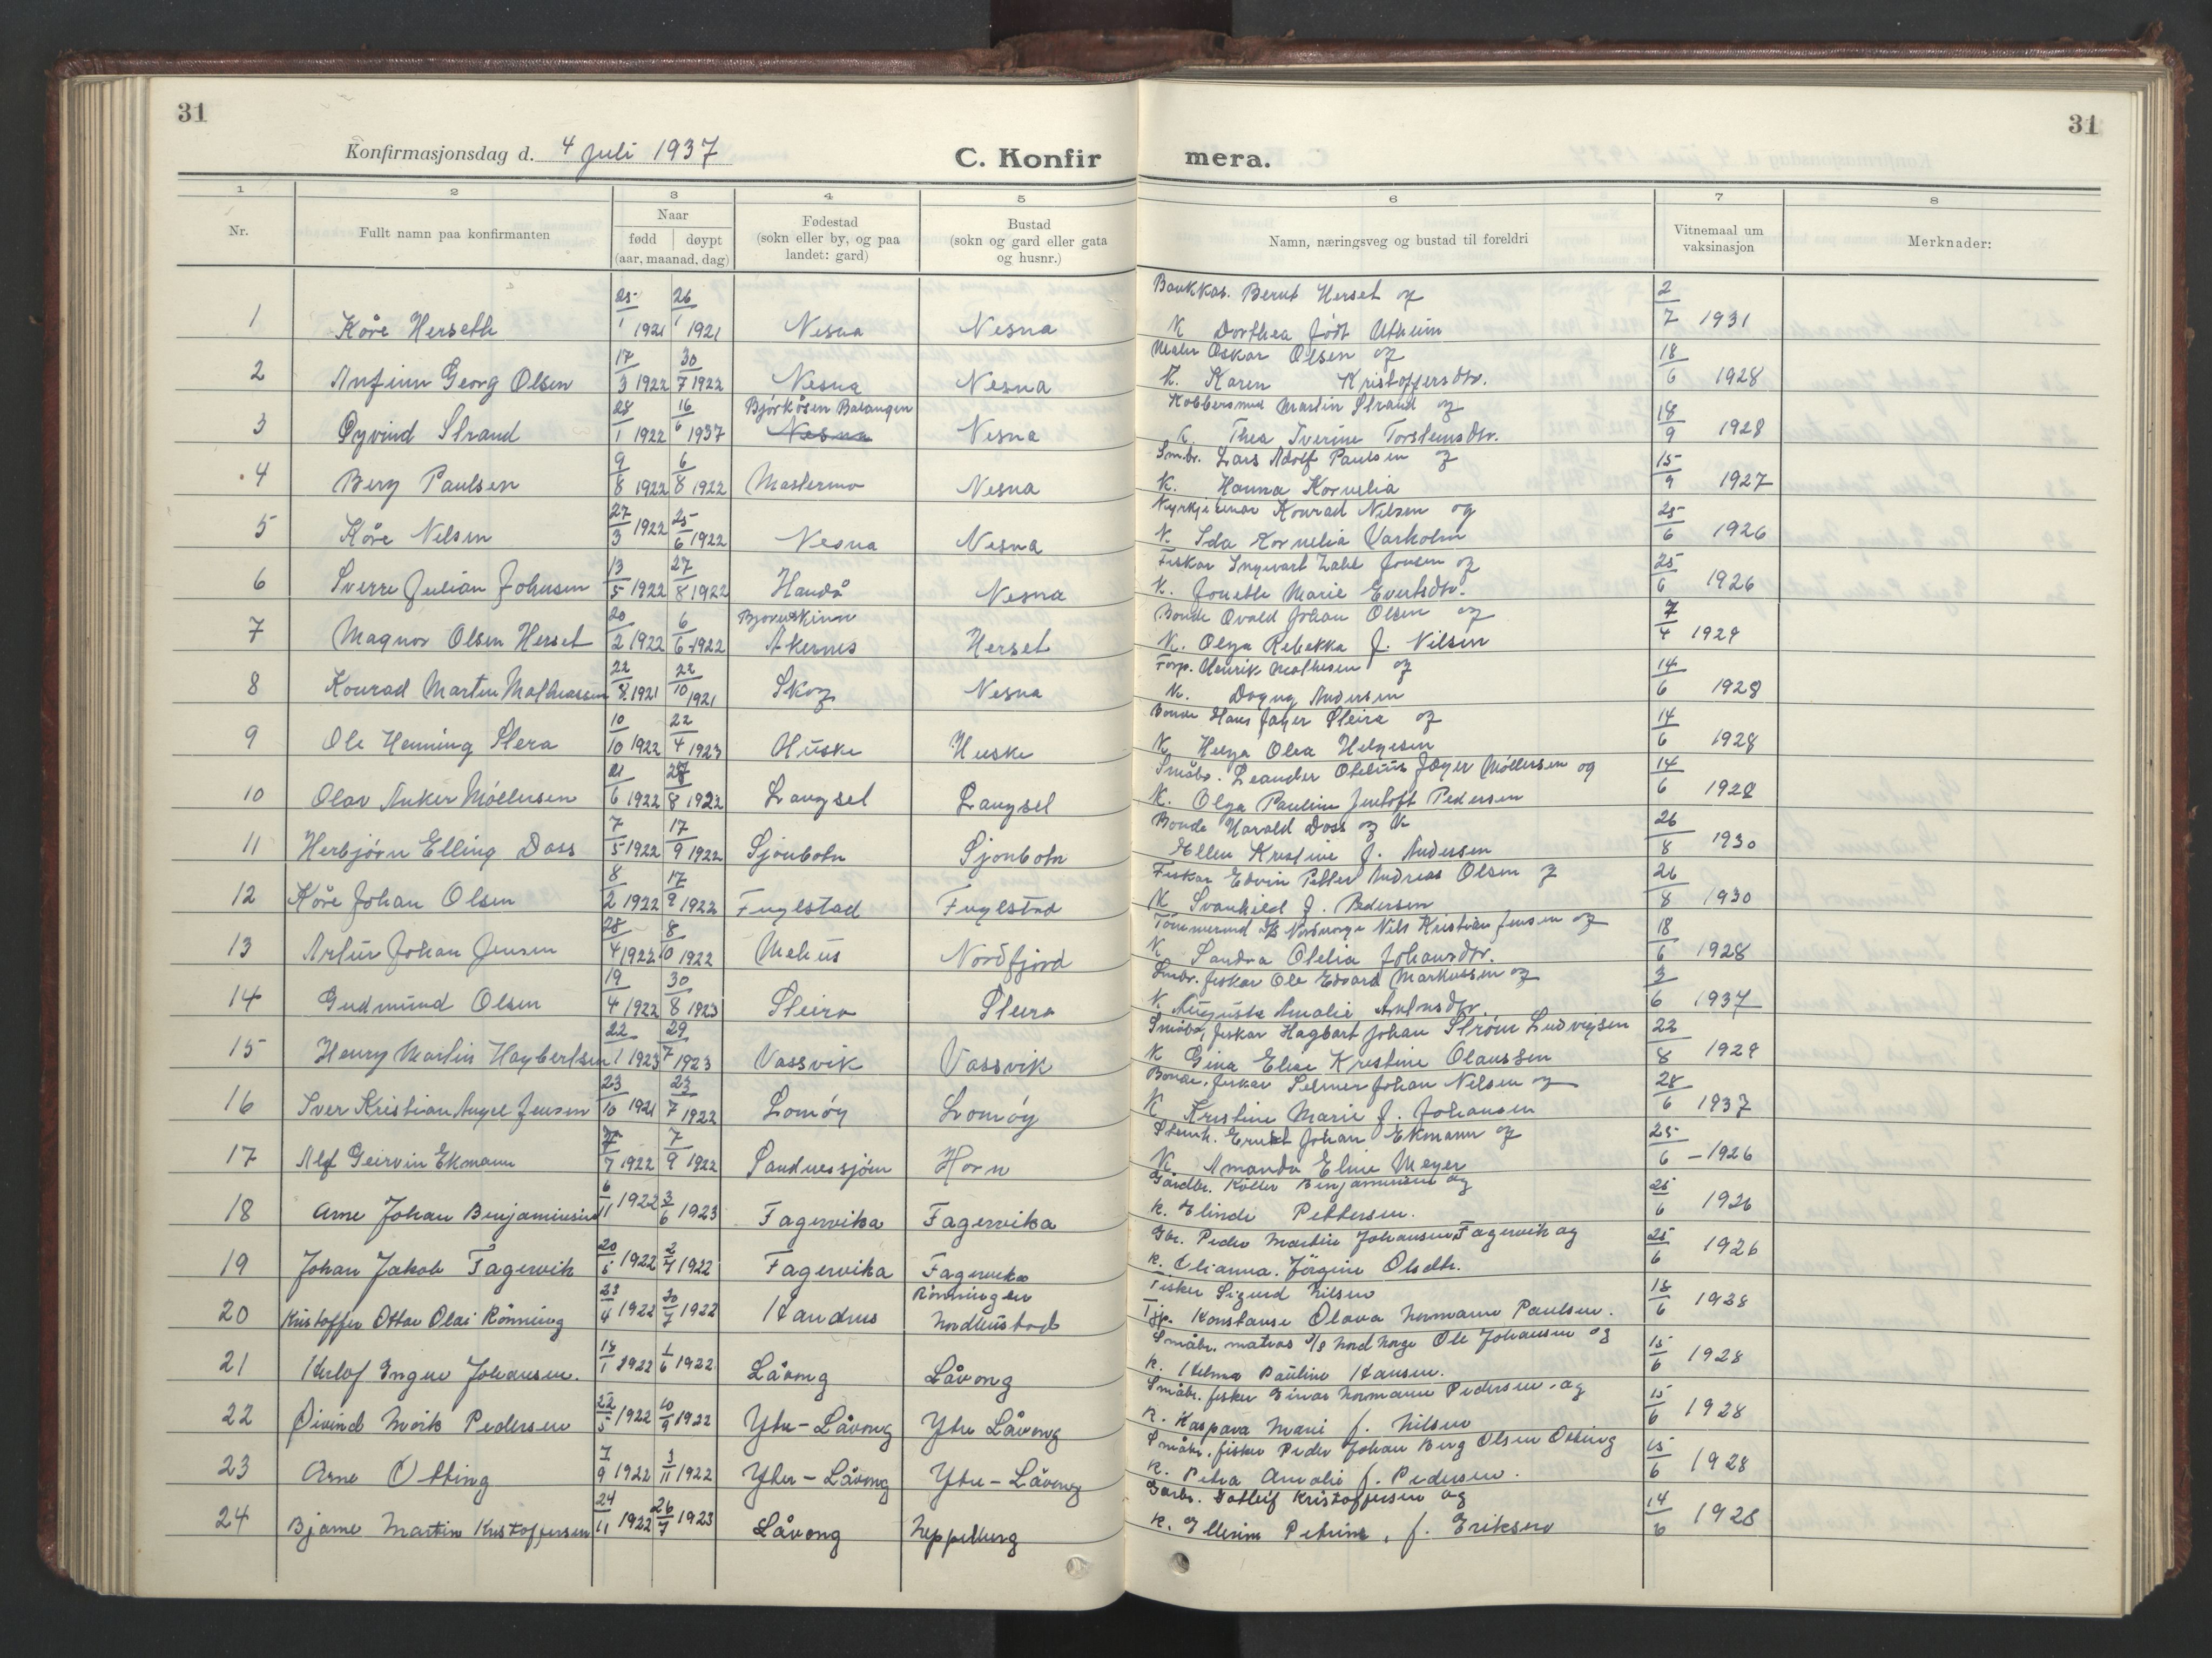 31
31
Konfirmasjonsdag d. 4 Juli 1937
C. Konfir mera.
1 2 3 4 5 6 7 8
Nr. Fullt namn paa konfirmanten Naar fødd døypt (aar, maanad, dag) Fødestad (sokn eller by, og paa landet: gard) Bustad (sokn og gard eller gata og husnr.) Namn, næringsveg og bustad til foreldri Vitnemaal um vaksinasjon Merknader:
Bankkas. Bernt Herset og
1 Kåre Herseth 25/1 1921 26/1 1921 Nesna Nesna K Dorthea født Utheim 2/7 1931
Maler Oskar Olsen og
2 Anfinn Georg Olsen 17/3 1922 30/7 1922 Nesna Nesna K. Karen Kristoffersdtr. 18/6 1928
Bjørkåsen Balangen Kobbersmed Martin Strand og
3 Øyvind Strand 28/1 1922 16/6 1937 Nesna Nesna K. Thea Iverine Torsteinsdtr. 18/9 1928
Småbr. Lars Adolf Paulsen og
4 Berg Paulsen 9/8 1922 6/8 1922 Mastermo Nesna K. Hanna Kornelia 15/9 1927
Konrad Nilsen og
5 Kåre Nilsen 27/3 1922 25/6 1922 Nesna Nesna K. Ida Kornelia Varholm 25/6 1926
Fiskar Ingvart Zahl Jonsen og
6 Sverre Julian Johnsen 13/5 1922 27/8 1922 Handå Nesna K. Jonette Marie Evertsdtr. 25/6 1926
Bjørnskinn Bonde Ovald Johan Olsen og
7 Magnor Olsen Herset 20/2 1922 6/6 1922 Åkernes Herset K. Olga Rebekka f. Nilsen 7/4 1929
Forp. Henrik Mathisen og
8 Konrad Martin Mathiassen 22/8 1921 22/10 1921 Skog Nesna K. Dagny Andersen 14/6 1928
Bonde Hans Jager Sleira og
9 Ole Henning Slera 10/10 1922 22/4 1923 Huske Huske K Helga Olea Helgesen 14/6 1928
Småbr. Leander Otelius Jæger Møllersen og
10 Olav Anker Møllersen 21/6 1922 27/8 1922 Langsel Langsel K. Olga Pauline Jentoft Pedersen 14/6 1928
Bonde Harald Dass og K
11 Herbjørn Elling Dass 7/5 1922 17/9 1922 Sjonbotn Sjonbotn Ellen Kristine f. Andersen 26/8 1930
Fiskar Edvin Petter Andreas Olsen og
12 Kåre Johan Olsen 8/2 1922 17/9 1922 Fuglstad Fuglstad K Svanhild f. Pedersen 26/8 1930
Tømmermd Nordnorge Nils Kristian Jensen og
13 Artur Johan Jensen 28/4 1922 8/10 1922 Mehus Nordfjord K Sandra Otelia Johansdtr. 18/6 1928
Småbr. fiskar Ole Edvard Markussen og
14 Gudmund Olsen 19/4 1922 30/8 1923 Sleira Sleira K. Augusta Amalie Antonsdtr. 3/6 1937
Småbr. fiskar Hagbart Johan Strøm Ludvigsen
15 Henry Martin Hagbertsen 22/1 1923 29/7 1923 Vassvik Vassvik K Gina Elise Kristine Olaussen 22/8 1929
Bonde, fiskar Selmer Johan Nilsen og
16 Iver Kristian Angel Jensen 23/10 1921 23/7 1922 Lomøy Lomøy K Kristine Marie f. Johansen 28/6 1937
Stenh. Ernst Johan Ekmann og
17 Alf Geirvin Ekmann 7/7 1922 7/9 1922 Sandnessjøen Horn K Amanda Eline Meyer 25/6 - 1926
Gårdbr. Benjaminsen og
18 Arne Johan Benjaminsen 6/11 1922 3/6 1923 Fagervika Fagervika K. Elinda Pettersen. 25/6 1926
Gbr. Peder Martin Johansen Fagervik og
19 Johan Jakob Fagervik 20/5 1922 2/7 1922 Fagervika Fagervika K. Elianna. Jørgine Olsdtr. 25/6 1926
Rønningen Fisker Sigurd Nilsen
20 Kristoffer Ottar Olai Rønning 23/4 1922 30/7 1922 Handnes Nordhustad Tjp. Konstanse Olava Normann Paulsen. 18/6 1928
Småbr. matros D/S Nord Norge Ole Johansen og
21 Herlof Ingvar Johansen. 18/1 1922 1/6 1922 Låvong Låvong K. Helma Pauline Hansen. 15/6 1928
Småbr. fisker Einar Normann Pedersen og
22 Øivind Mork Pedersen 22/5 1922 10/9 1922 Ytre-Låvong Ytre Låvong K. Kaspara Marie f. Nilsen 15/6 1928
Småbr. fisker Peder Johan Berg Olsen Otting
23 Arne Otting 7/9 1922 3/11 1922 Ytter-Låvong Ytre-Låvong K. Petra Amalie f. Pedersen. 15/6 1928
Garbr. Gotleif Kristoffersen og
24 Bjarne Martin Kristoffersen 24/11 1922 26/7 1923 Låvong Neppelberg K. Ellerine Petrine, f. Eriksen 14/6 1928